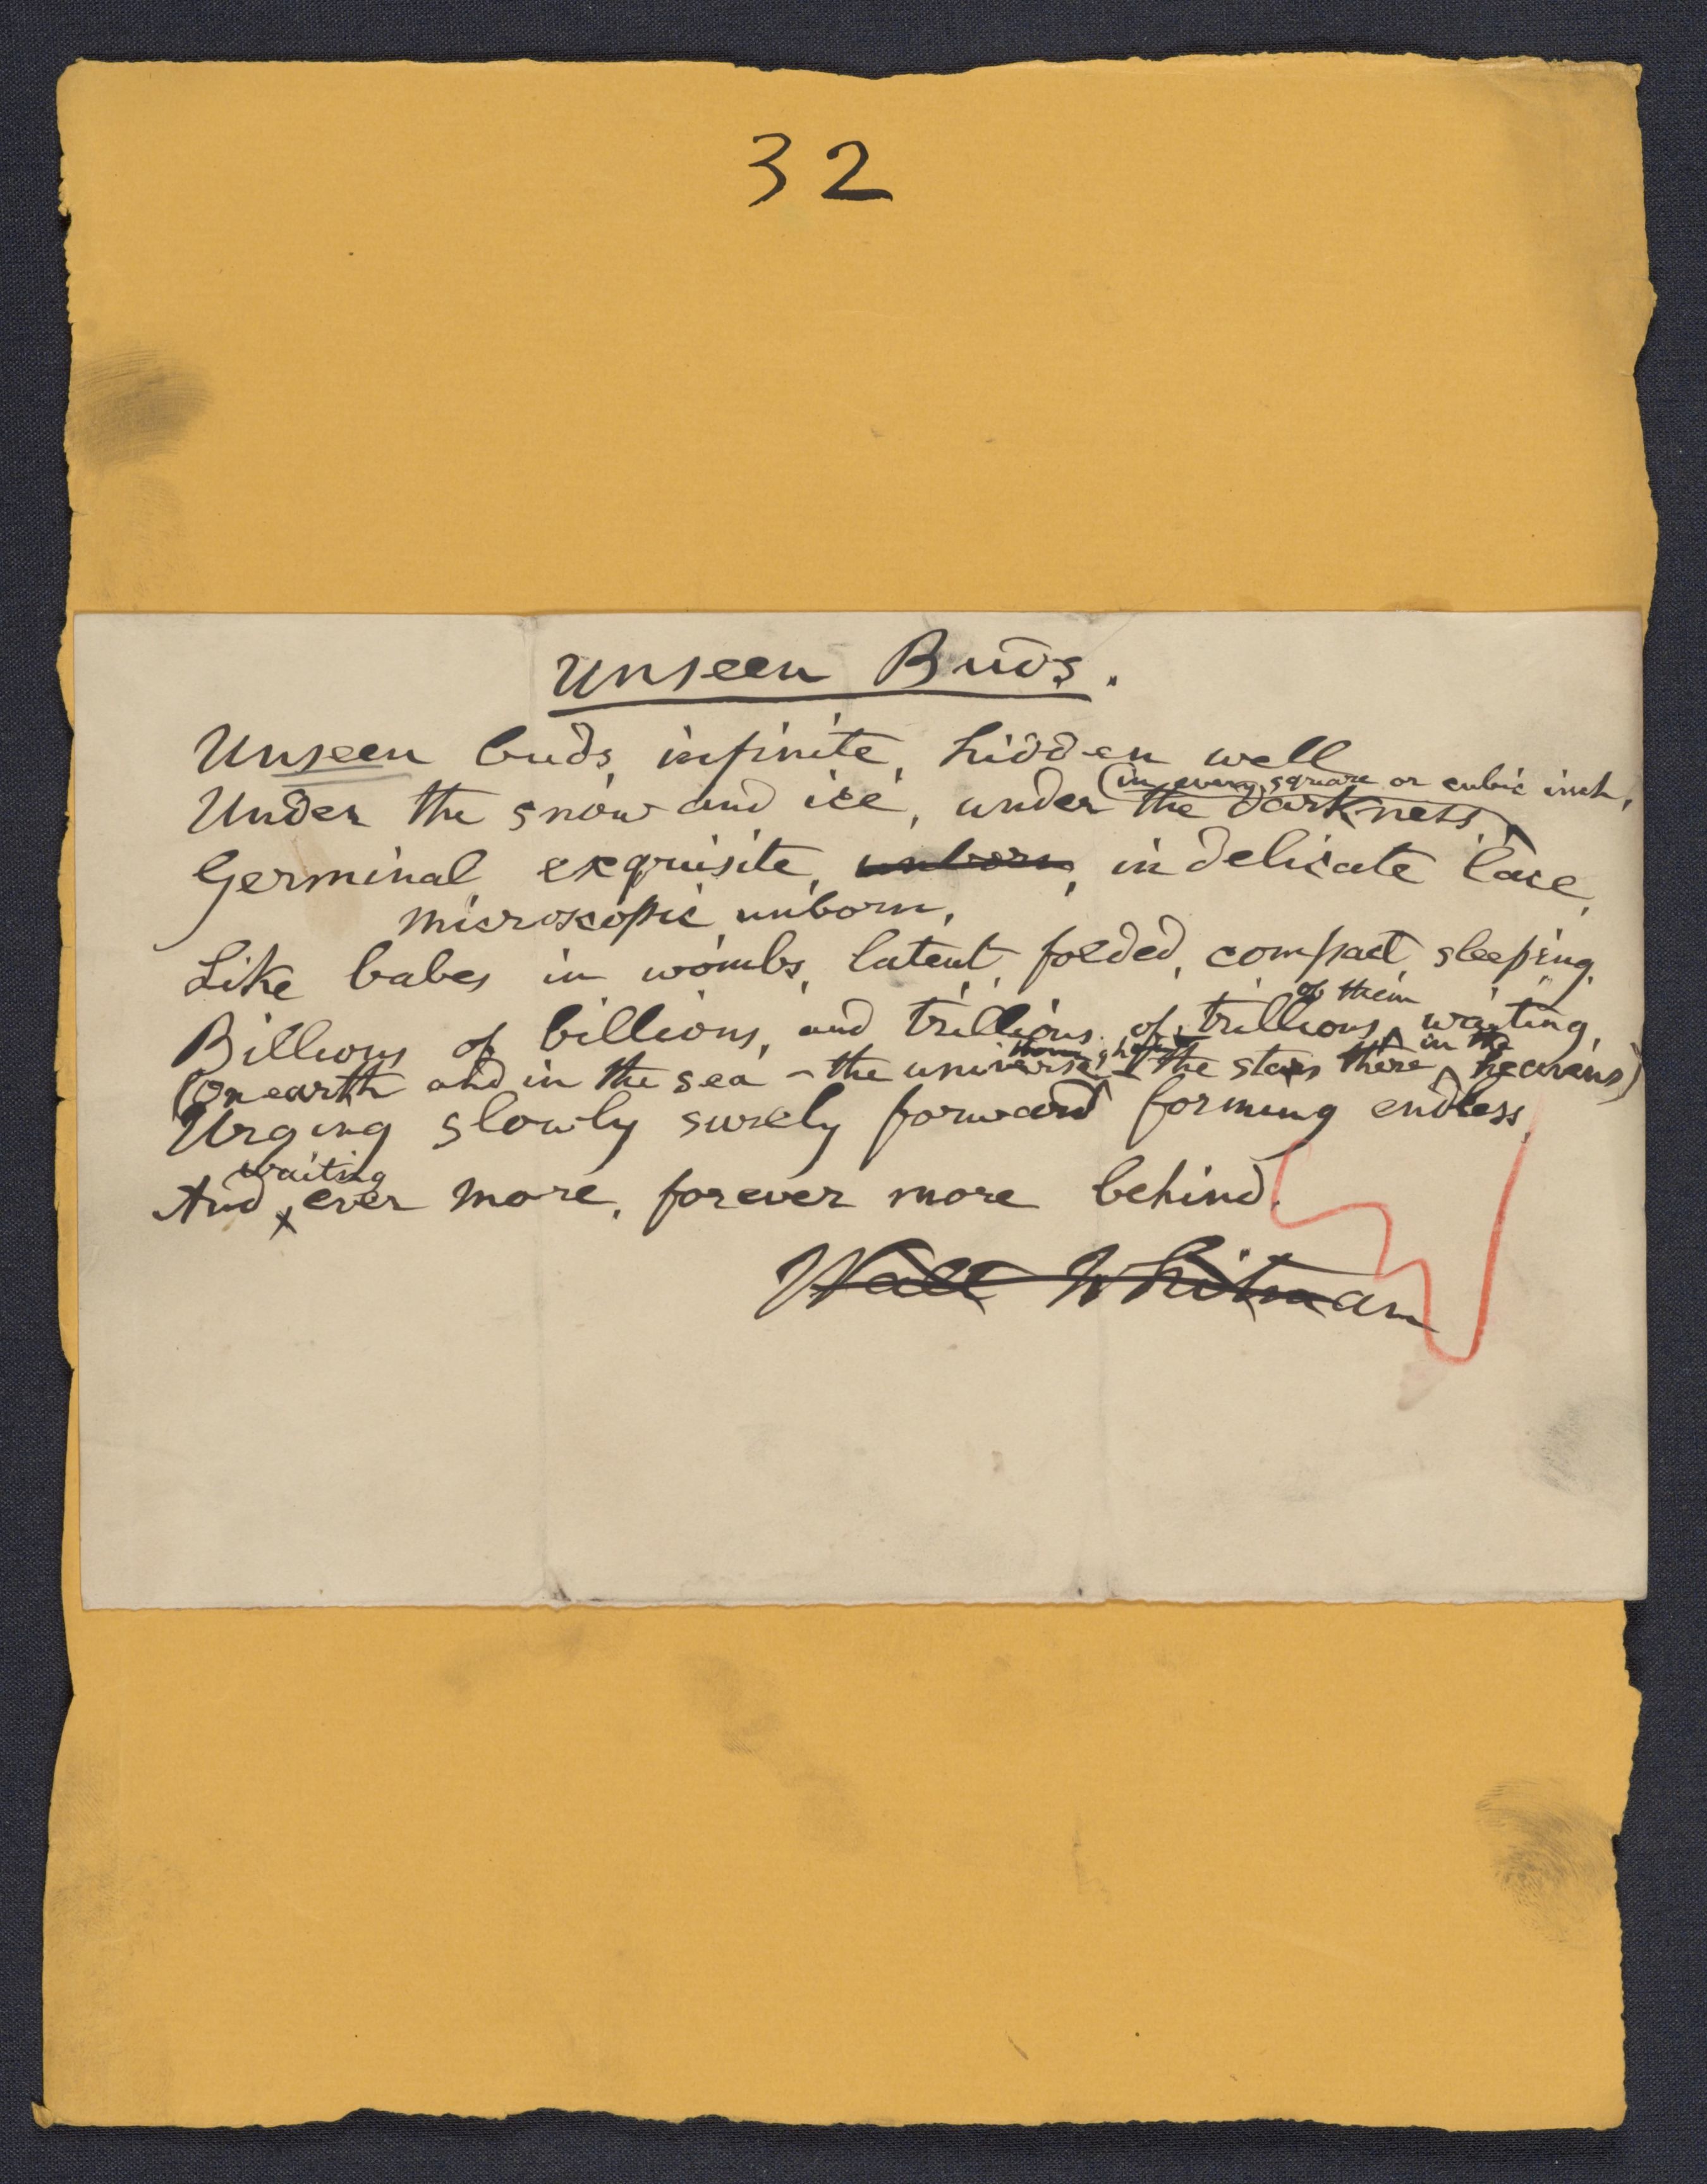 32
Unseen Buds.
Unseen buds, infinite, hidden well
(in every square or cubic inch,
Under the snow and ice, under the darkness,
Germinal, exquisite, unborn, in delicate lace,
microscopic, unborn,
Like babes in wombs, latent, folded, compact, sleeping.
of them
Billions of billions, and trillions of trillions waiting,
in the
(On earth and in the sea – the universe – the stars there heavens)
Urging slowly surely forward forming endless,
waiting
And ever more, forever more behind.
Walt Whitman